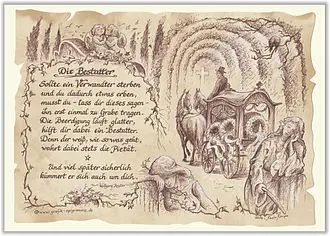 Die Bestatter
Sollte ein Verwandter sterben
und du dadurch etwas erben,
musst du - lass dir dieses sagen
ihn erst einmal zu Grabe tragen.
Die Beerdigung läuft glatter,
hilft dir dabei ein Bestatter.
Denn der weiß, wie so was geht,
wahrt dabei stets die Pietät.
Und viel später sicherlich
kümmert er sich auch um dich.